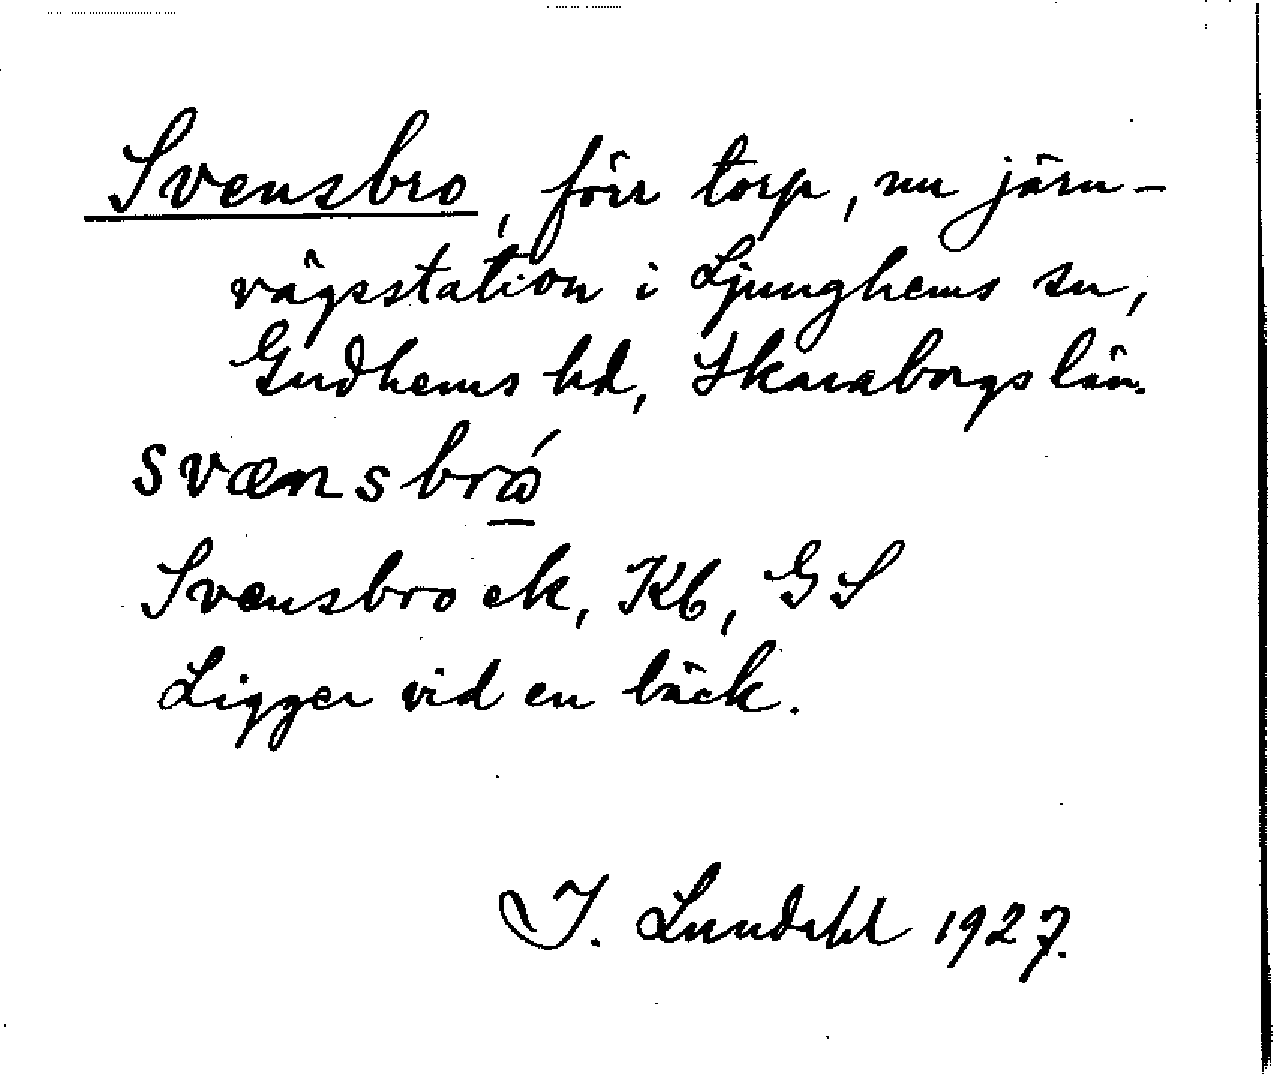 Svensbro, förr torp, nu järn-
vägsstation i Ljunghems sn,
Gudhems hd, Skaraborgs län.
svænsbrò̲
Svensbro ek, Kb, GS
Ligger vid en bäck.
I. Lundahl 1927.